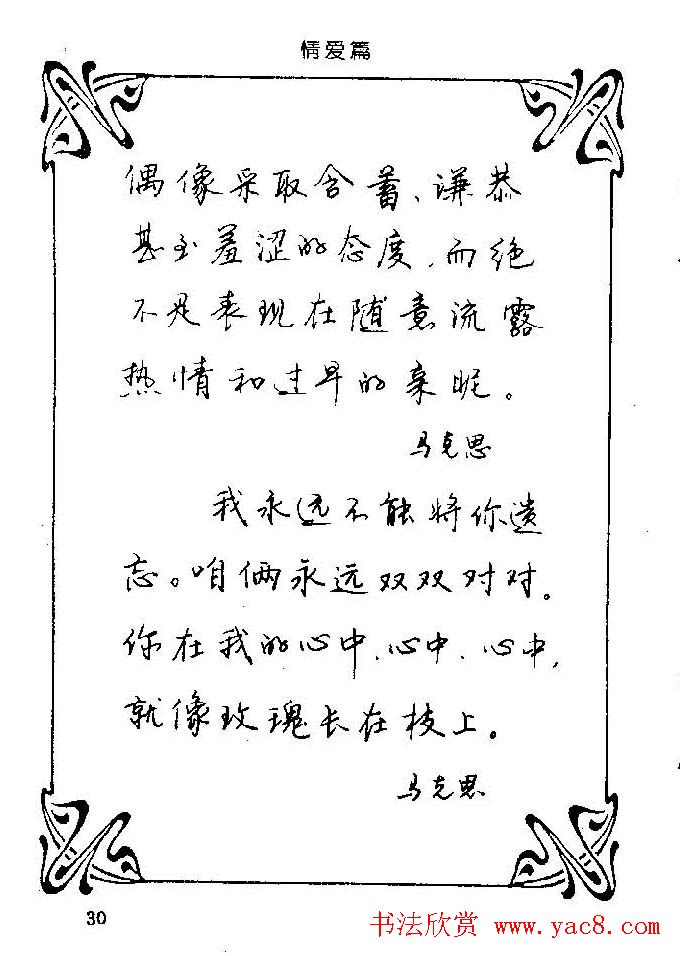 情爱篇
偶像采取含蓄、谦恭
甚至羞涩的态度,而绝
不是表现在随意流露
热情和过早的亲昵。
马克思
我永远不能将你遗
忘。咱俩永远双双对对。
你在我的心中、心中、心中,
就像玫瑰长在枝上。
马克思
30
书法欣赏 www.yac8.com